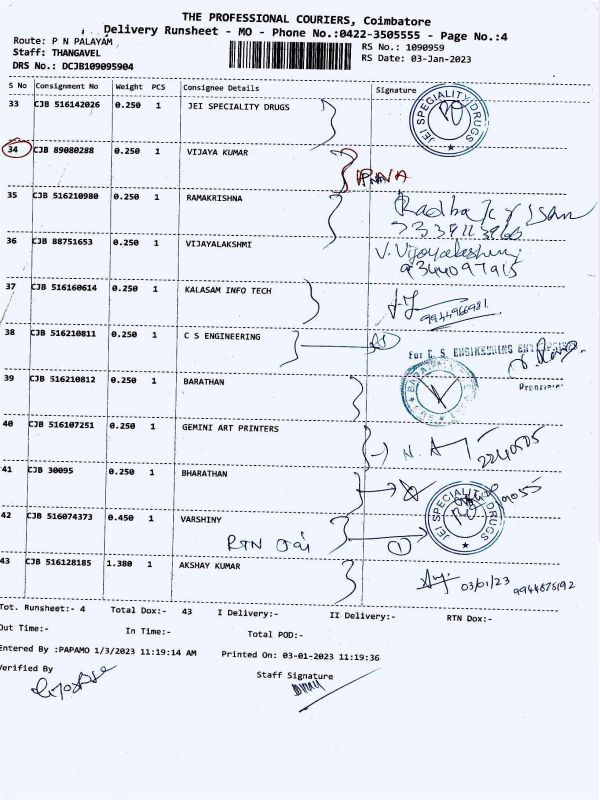 THE PROFESSIONAL COURIERS, Coimbatore
Delivery Runsheet - MO - Phone No.:0422-3505555 - Page No.:4
Route: P N PALAYAM
RS No.: 1090959
Staff: THANGAVEL
RS Date: 03-Jan-2023
DRS No.: DCJB109095904
S No Consignment No Weight PCS Consignee Details Signature
33 CJB 516142026 0.250 1 JEI SPECIALITY DRUGS
JEI SPECIALITY DRUGS
34 CJB 89080288 0.250 1 VIJAYA KUMAR
35 CJB 516210980 0.250 1 RAMAKRISHNA
36 CJB 88751653 0.250 1 VIJAYALAKSHMI V. Vijayalakshmi
9344097915
37 CJB 516160614 0.250 1 KALASAM INFO TECH
9944966981
38 CJB 516210811 0.250 1 C S ENGINEERING
For C. S. ENGINEERING
39 CJB 516210812 0.250 1 BARATHAN
40 CJB 516107251 0.250 1 GEMINI ART PRINTERS
2240505
41 CJB 30095 0.250 1 BHARATHAN
42 CJB 516074373 0.450 1 VARSHINY
JEI SPECIALITY DRUGS
RTN
1
43 CJB 516128185 1.380 1 AKSHAY KUMAR
03/01/23 9944876192
Tot. Runsheet:- 4 Total Dox:- 43 I Delivery:- II Delivery:- RTN Dox:-
Out Time:- In Time:- Total POD:-
Entered By :PAPAMO 1/3/2023 11:19:14 AM Printed On: 03-01-2023 11:19:36
Verified By
Staff Signature